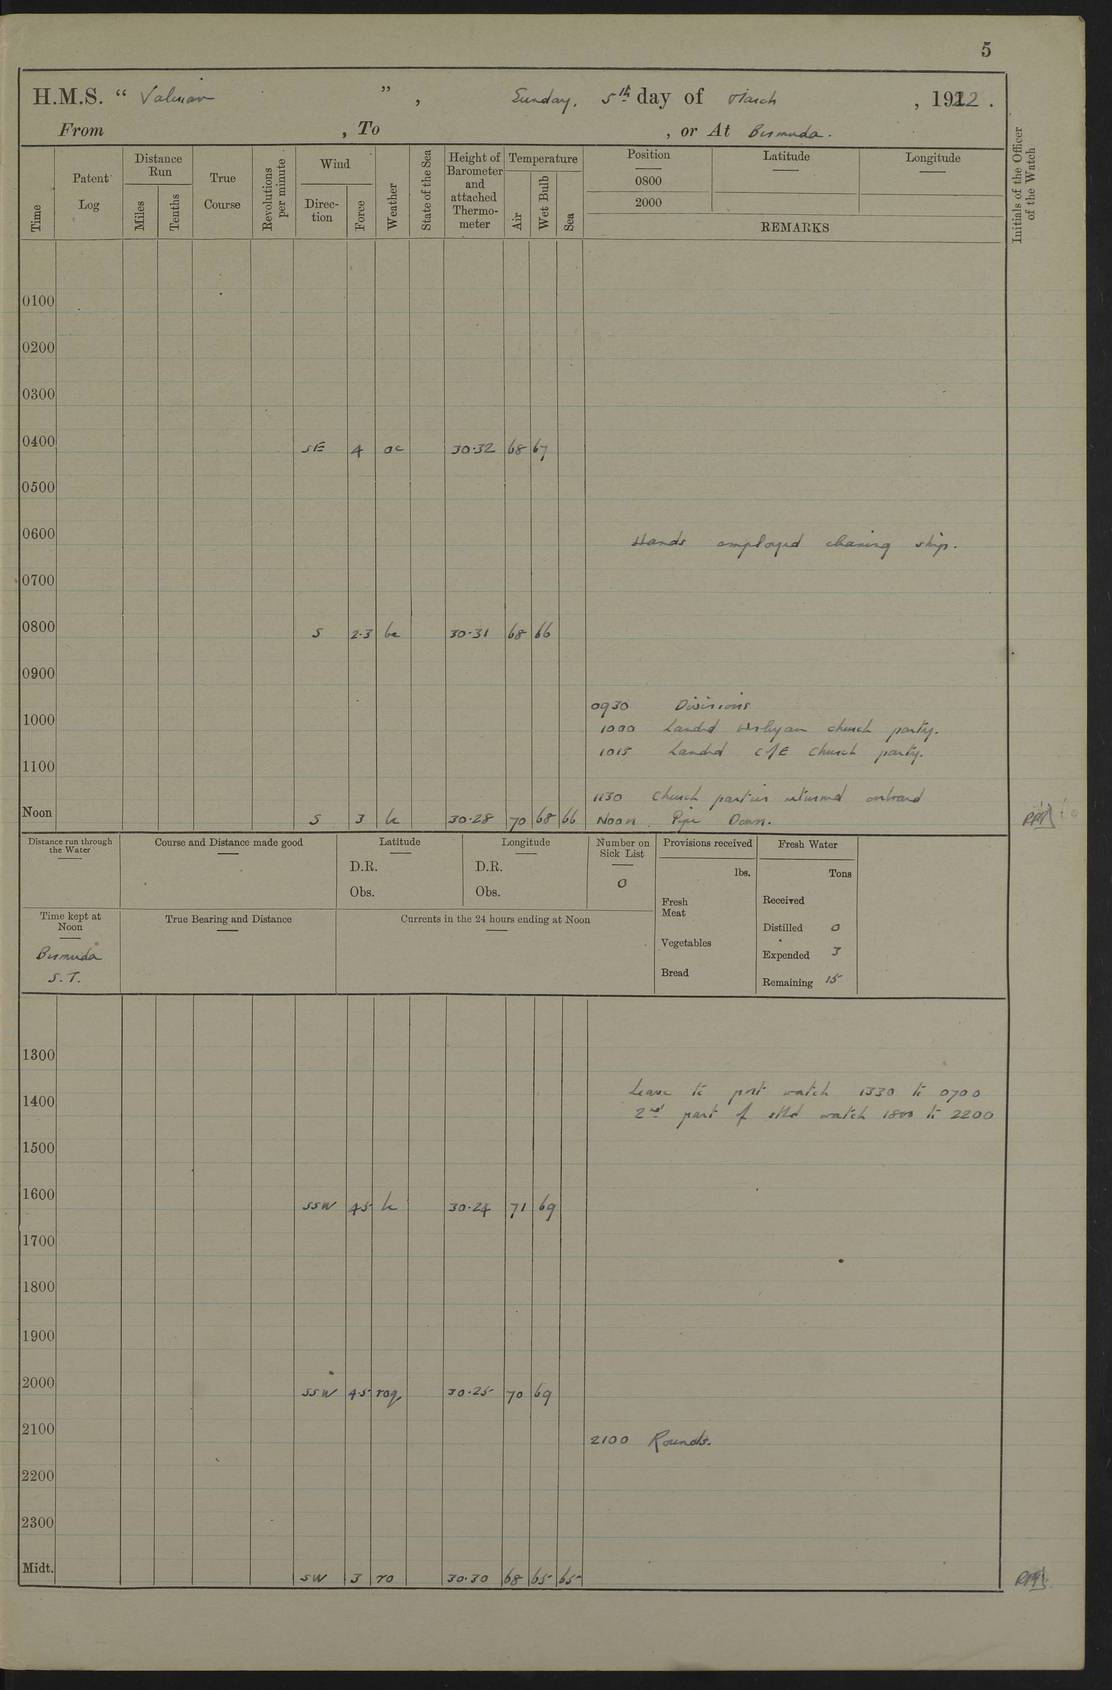 5
H.M.S. “ Valerian ”, Sunday, 5th day of March, 1922.
From , To , or At Bermuda.
Time
Patent Log
Distance Run
Miles
Tenths
True Course
Revolutions per minute
Wind
Direc-tion
Force
Weather
State of the Sea
Height of Barometer and attached Thermo-meter
Temperature
Air
Wet Bulb
Sea
Position
Latitude
Longitude
0800
2000
REMARKS
Initials of the Officer of the Watch
0100
0200
0300
0400 SE 4 oc 30.32 68 67
0500
0600 Hands employed cleaning ship.
0700
0800 S 2.3 bc 30.31 68 66
0900
0930 Divisions
1000
1000 Landed Wesleyan church party.
1015 Landed C of E Church party.
1100
1130 Church parties returned onboard
Noon S 3 bc 30.28 70 68 66 Noon Pipe Down.
Distance run through the Water
Course and Distance made good
Latitude
D.R.
Obs.
Longitude
D.R.
Obs.
Number on Sick List
0
Provisions received
lbs.
Fresh Meat
Vegetables
Bread
Fresh Water
Tons
Received
Distilled 0
Expended 3
Remaining 15
Time kept at Noon
Bermuda
S.T.
True Bearing and Distance
Currents in the 24 hours ending at Noon
1300
Leave to port watch 1330 to 0700
1400
2nd part of stbd watch 1800 to 2200
1500
1600 SSW 4.5 bc 30.24 71 69
1700
1800
1900
2000 SSW 4.5 roq 30.25 70 69
2100 2100 Rounds.
2200
2300
Midt. SW 3 ro 30.30 68 65 65